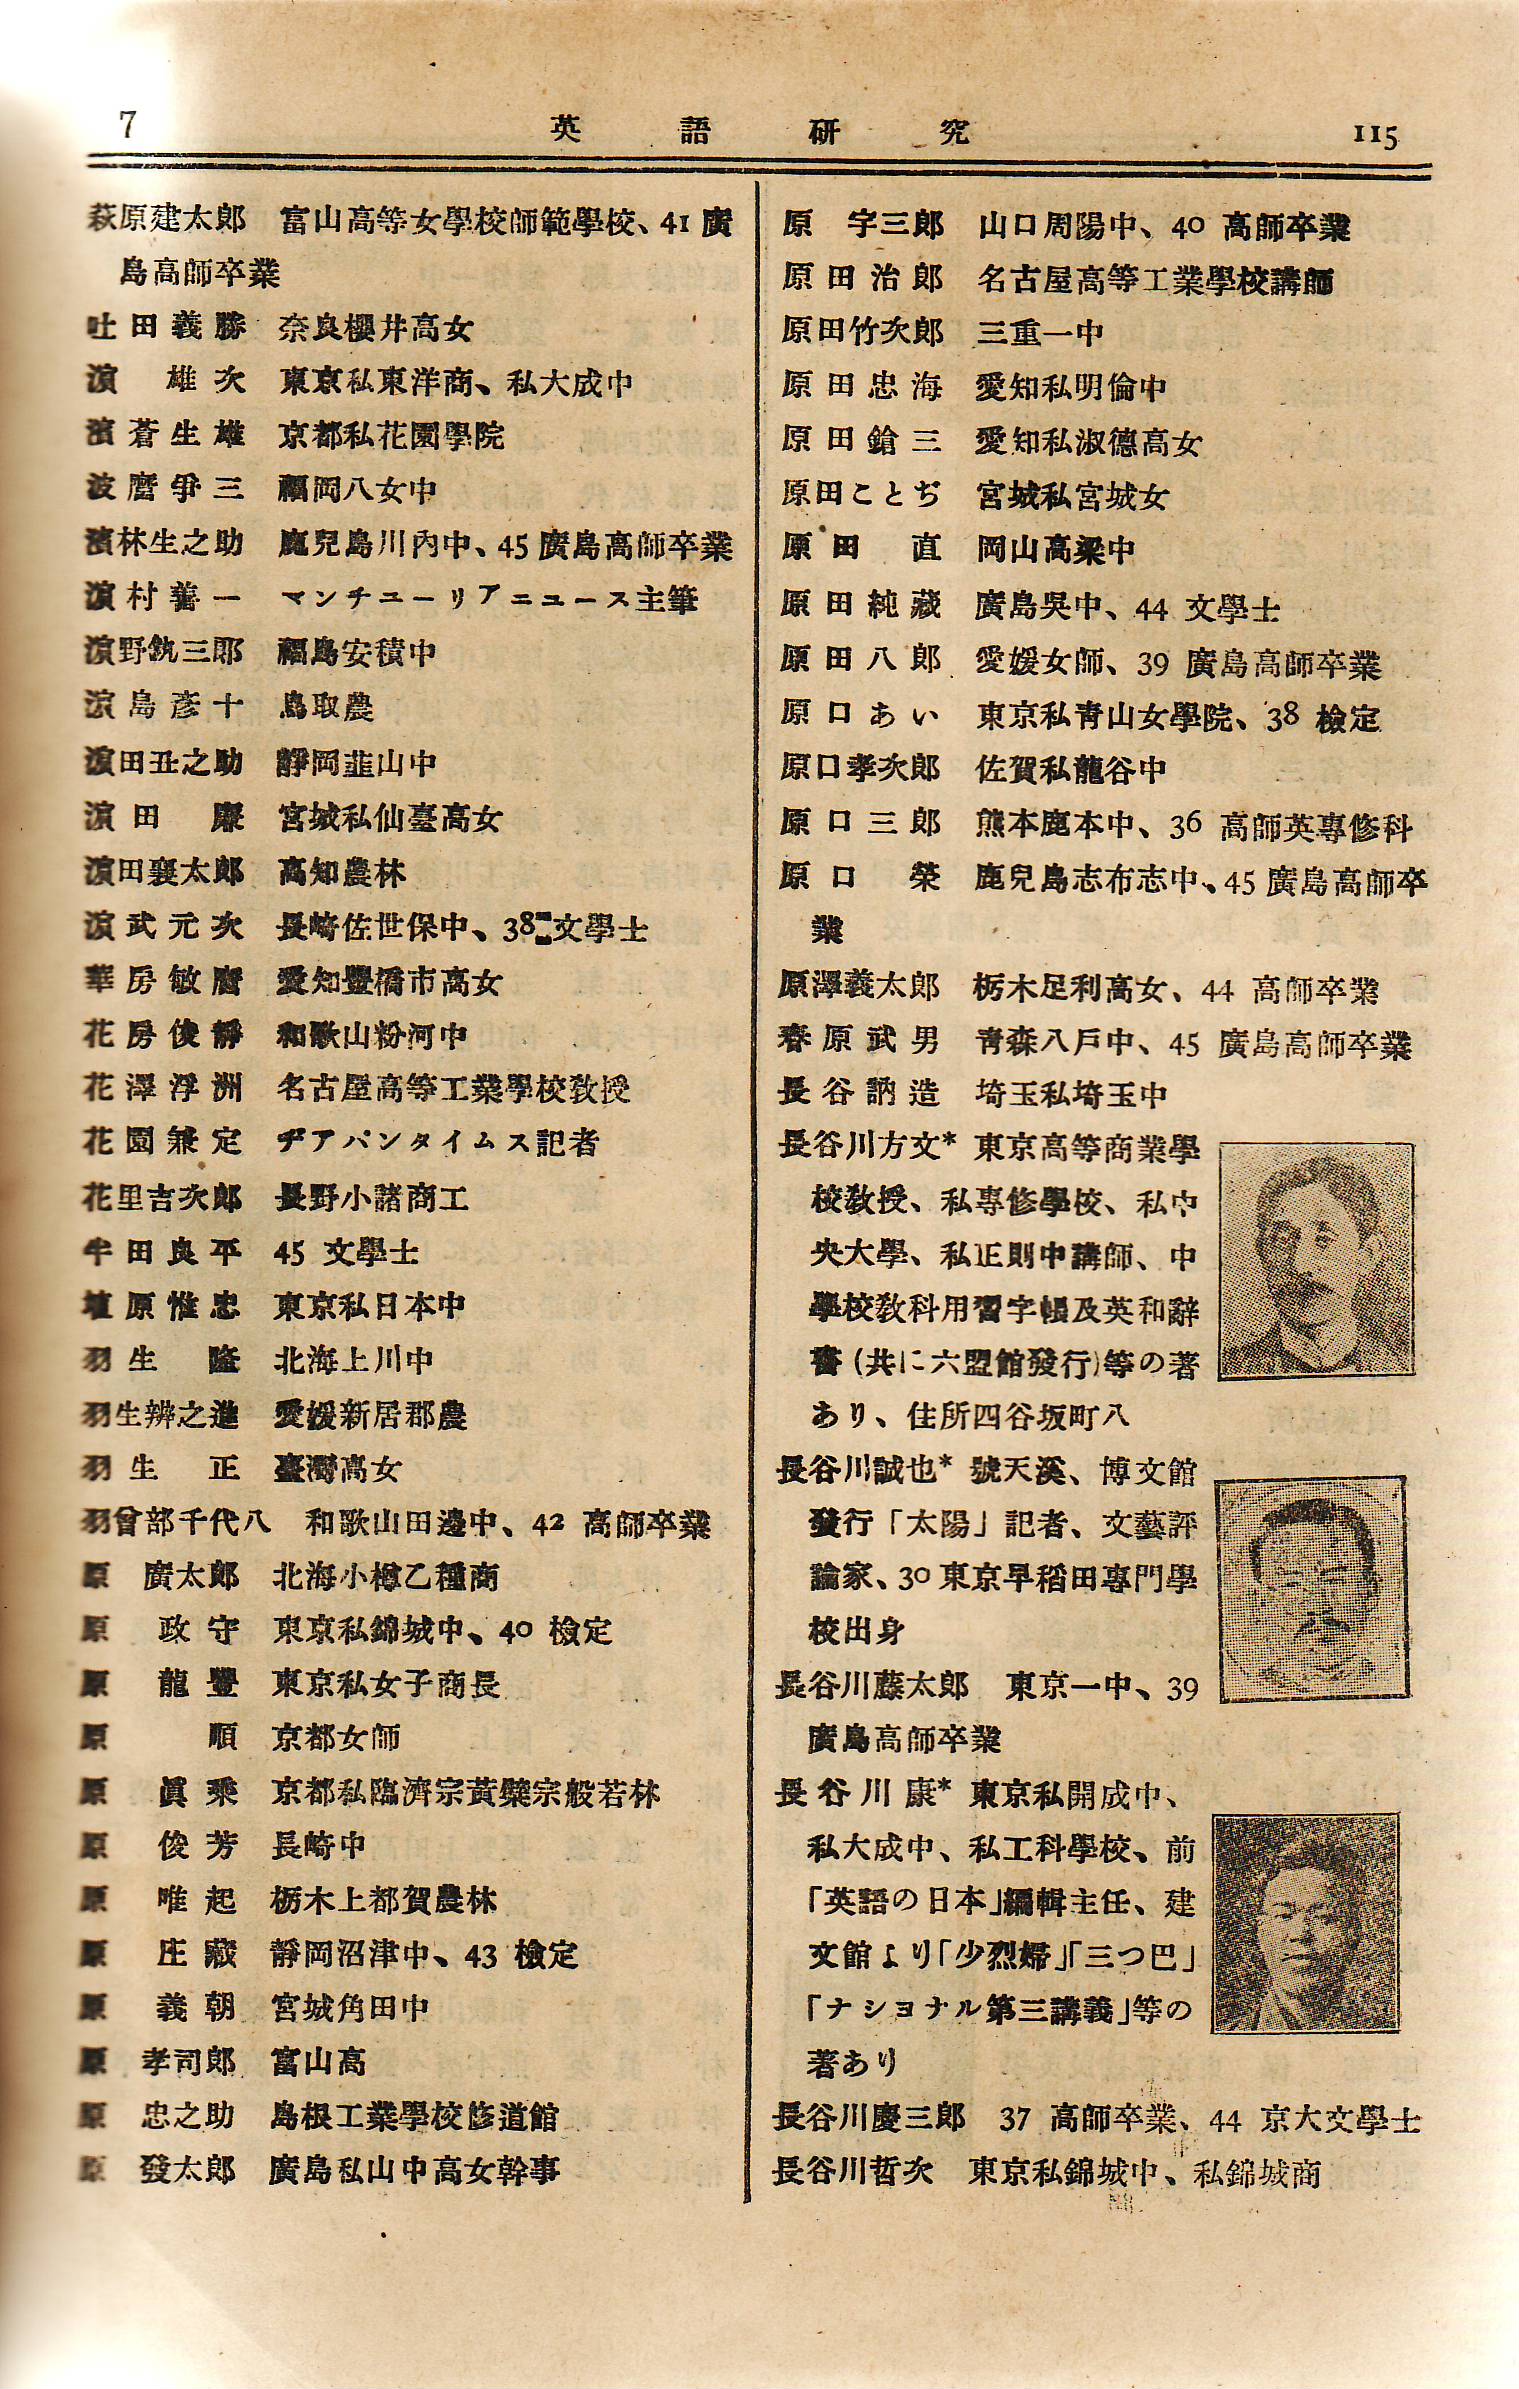 7 英語研究 115
萩原建太郎 富山高等女學校師範學校、41 廣
島高師卒業
吐田義勝 奈良櫻井高女
濵 雄次 東京私東洋商、私大成中
濵蒼生雄 京都私花園學院
波麿爭三 福岡八女中
濵林生之助 鹿兒島川內中、45 廣島高師卒業
濵村善一 マンチユーリアニユース主筆
濵野銃三郎 福島安積中
濵島彦十 鳥取農
濵田丑之助 靜岡韮山中
濵田 廉 宮城私仙臺高女
濵田襄太郎 高知農林
濵武元次 長崎佐世保中、38 文學士
華房敏麿 愛知豐橋市高女
花房俊靜 和歌山粉河中
花澤浮洲 名古屋高等工業學校敎授
花園兼定 ヂアパンタイムス記者
花里吉次郎 長野小諸商工
半田良平 45 文學士
埴原惟忠 東京私日本中
羽生 隆 北海上川中
羽生辨之進 愛媛新居郡農
羽生 正 臺灣高女
羽曾部千代八 和歌山田邊中、42 高師卒業
原 廣太郎 北海小樽乙種商
原 政守 東京私錦城中、40 檢定
原 龍豐 東京私女子商長
原 順 京都女師
原 眞乘 京都私臨濟宗黃檗宗般若林
原 俊芳 長崎中
原 唯起 栃木上都賀農林
原 庄藏 靜岡沼津中、43 檢定
原 義朝 宮城角田中
原 孝司郎 富山高
原 忠之助 島根工業學校修道館
原 發太郎 廣島私山中高女幹事
原 宇三郎 山口周陽中、40 高師卒業
原田治郎 名古屋高等工業學校講師
原田竹次郎 三重一中
原田忠海 愛知私明倫中
原田鎗三 愛知私淑德高女
原田ことぢ 宮城私宮城女
原田 直 岡山高梁中
原田純藏 廣島吳中、44 文學士
原田八郎 愛媛女師、39 廣島高師卒業
原口あい 東京私靑山女學院、38 檢定
原口孝次郎 佐賀私龍谷中
原口三郎 熊本鹿本中、36 高師英專修科
原口 榮 鹿兒島志布志中、45 廣島高師卒
業
原澤義太郎 栃木足利高女、44 高師卒業
春原武男 靑森八戶中、45 廣島高師卒業
長谷訥造 埼玉私埼玉中
長谷川方文* 東京高等商業學
校敎授、私專修學校、私中
央大學、私正則中講師、中
學校敎科用習字帳及英和辭
書(共に六盟館發行)等の著
あり、住所四谷坂町八
長谷川誠也* 號天溪、博文館
發行「太陽」記者、文藝評
論家、30 東京早稻田專門學
校出身
長谷川藤太郎 東京一中、39
廣島高師卒業
長谷川康* 東京私開成中、
私大成中、私工科學校、前
「英語の日本」編輯主任、建
文館より「少烈婦」「三つ巴」
「ナシヨナル第三講義」等の
著あり
長谷川慶三郎 37 高師卒業、44 京大文學士
長谷川哲次 東京私錦城中、私錦城商